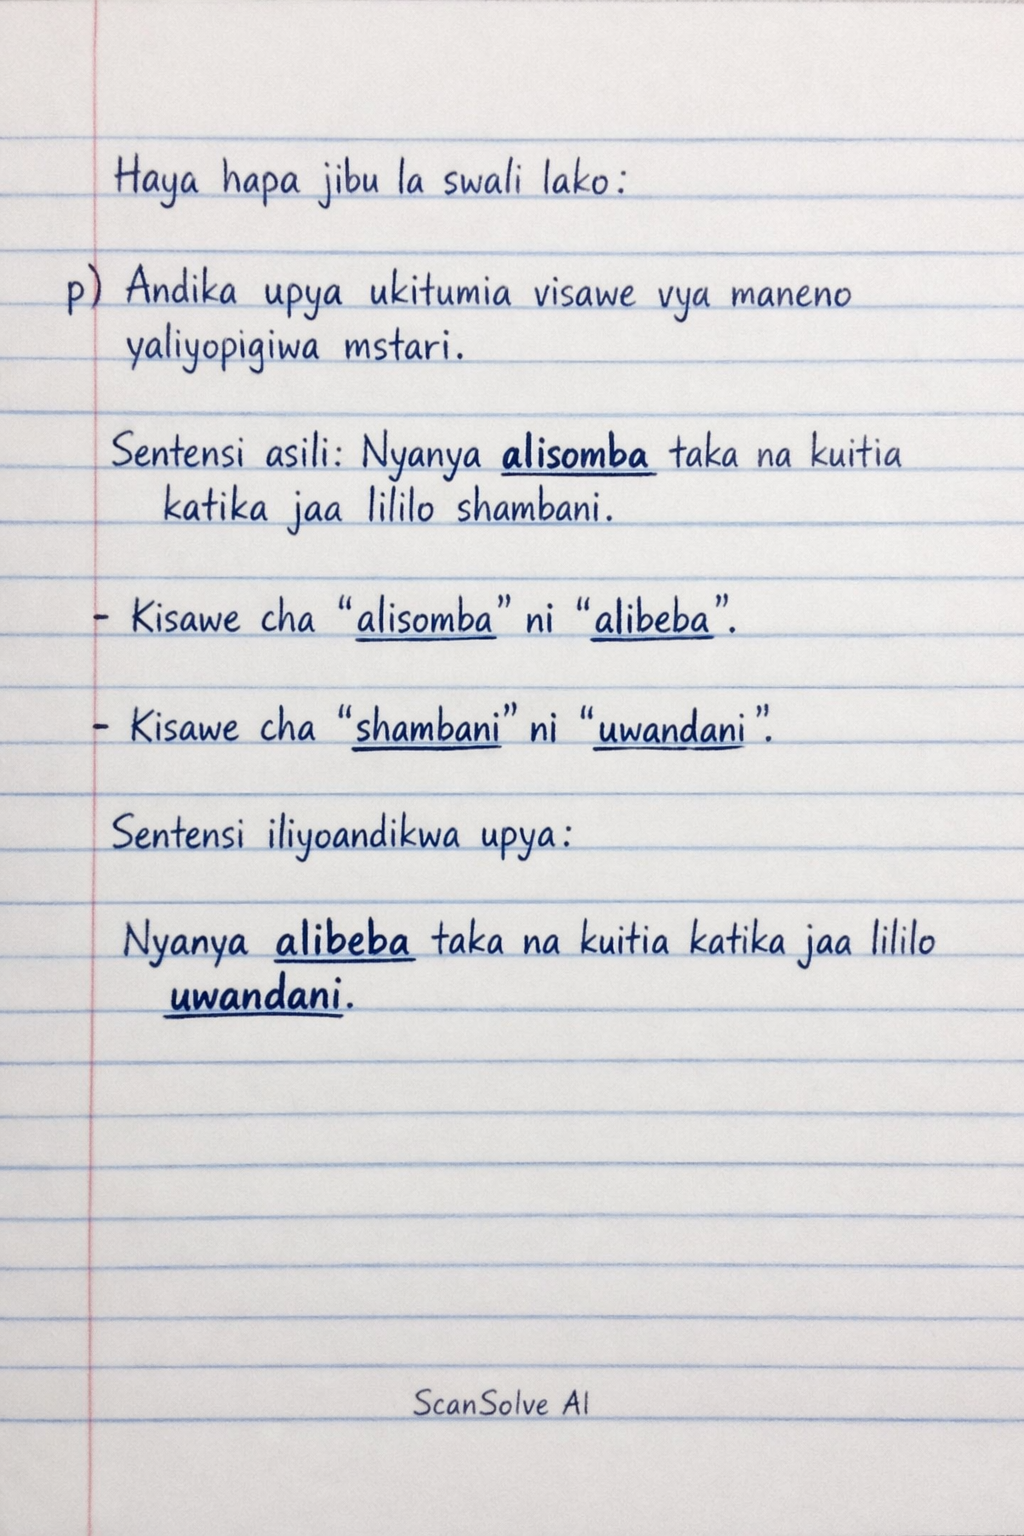 Haya hapa jibu la swali lako:
p) Andika upya ukitumia visawe vya maneno
yaliyopigiwa mstari.
Sentensi asili: Nyanya alisomba taka na kuitia
katika jaa lililo shambani.
- Kisawe cha “alisomba” ni “alibeba”.
- Kisawe cha “shambani” ni “uwandani”.
Sentensi iliyoandikwa upya:
Nyanya alibeba taka na kuitia katika jaa lililo
uwandani.
ScanSolve AI